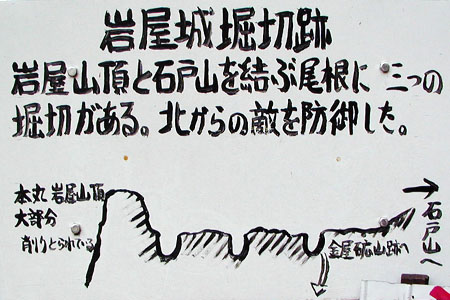 岩屋城堀切跡
岩屋山頂と石戸山を結ぶ尾根に 三つの
堀切がある。北からの敵を防御した。
本丸 岩屋山頂
大部分
削りとられている
金屋砿山跡へ
→
石戸山へ